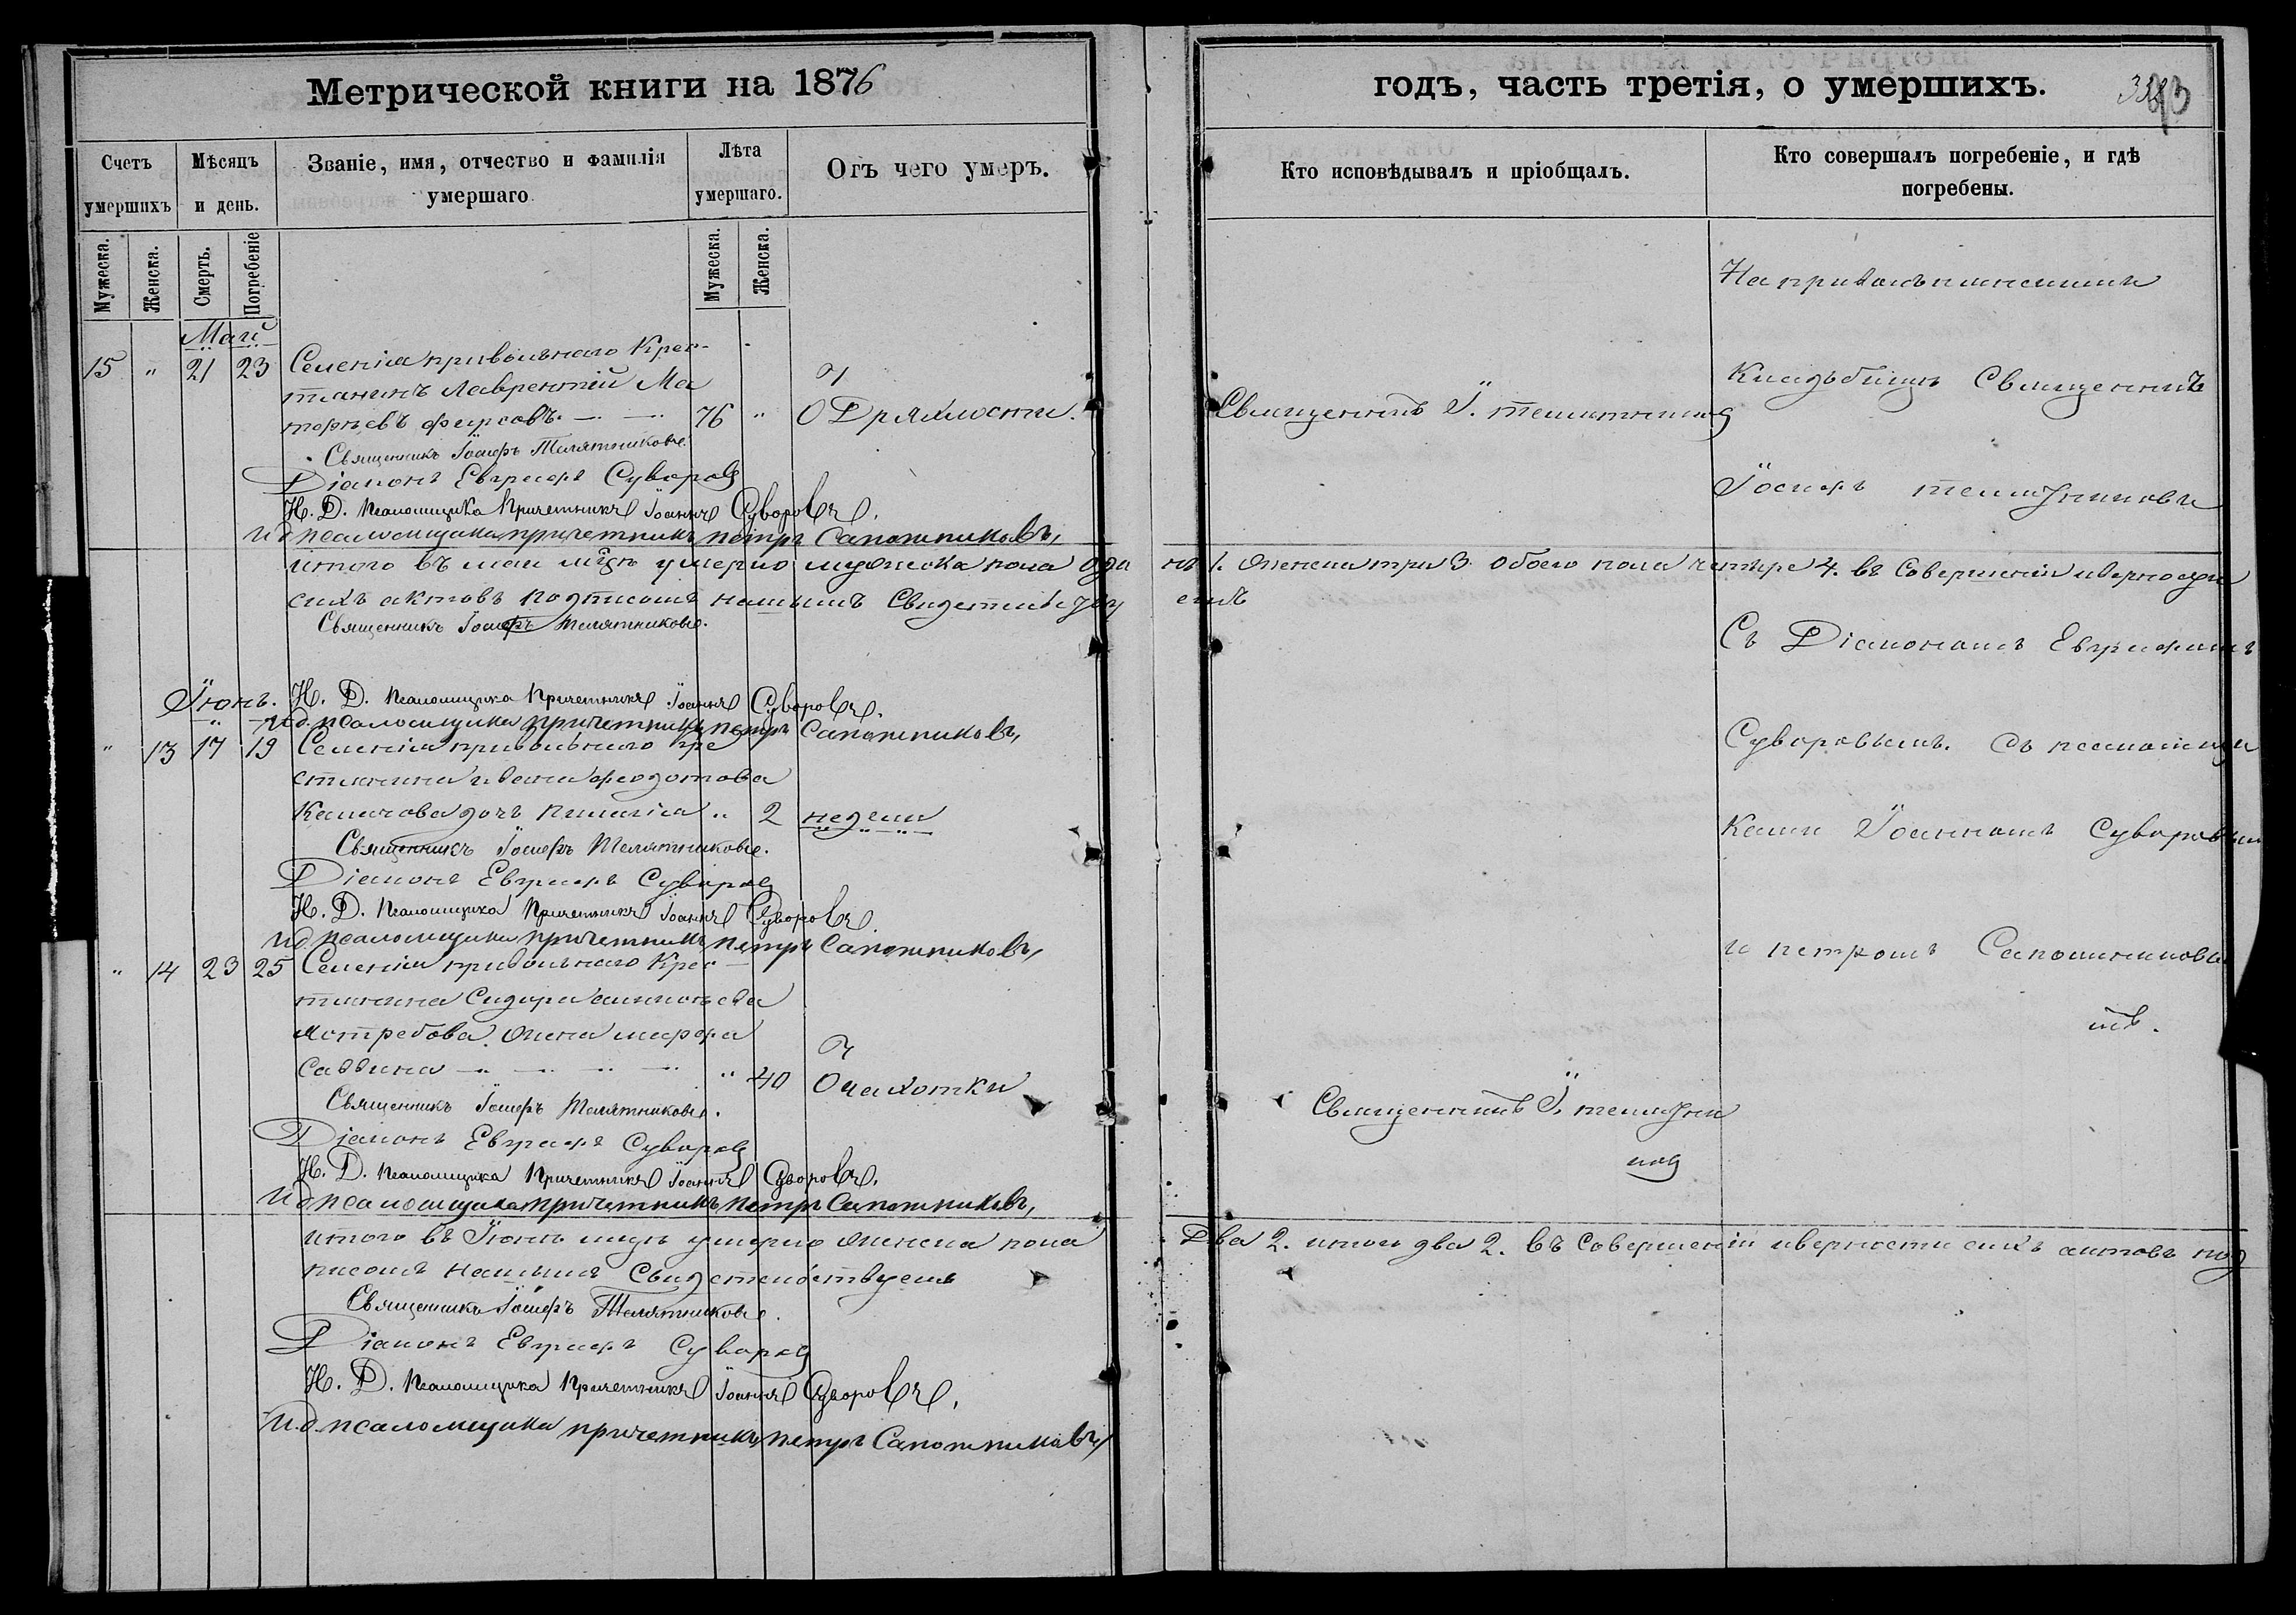 Метрической книги на 1876
Счетъ умершихъ
Мѣсяцъ и день.
Званіе, имя, отчество и фамилія умершаго
Лѣта умершаго.
Отъ чего умеръ.
Мужеска.
Женска.
Смерть.
Погребеніе
Мужеска.
Женска.
Маій
15 " 21 23 Селенія привольнаго Крес-
тянинъ Лаврентій Ма
торъевъ фирсовъ. 76 " От Дряхлости.
Священникъ Іосифъ Телятниковъ.
Діаконъ Евграфъ Суворов
И. Д. Псаломщика Причетникъ Іоаннъ Суворовъ.
и д псаломщика причетникъ петръ Сапожниковъ,
итого въ маи мцѣ умерло мужска пола оди
сихъ актовъ подписомъ нашимъ Свидетельству
Священникъ Іосифъ Телятниковъ.
Іюнь. И. Д. Псаломщика Причетникъ Іоаннъ Суворовъ.
и д. псаломщика причетникъ петръ Сапожниковъ,
" 13 17 19 Селенія привольнаго кре
стянина ивана федотова
Калачова дочь " 2 недели
Священникъ Іосифъ Телятниковъ.
Діаконъ Евграфъ Суворов
И. Д. Псаломщика Причетникъ Іоаннъ Суворовъ.
и д псаломщика причетникъ петръ Сапожниковъ,
" 14 23 25 Селенія привольнаго Крес-
тянина Сидора
ястребова жена марфа
Саввина " 40 От чахотки
Священникъ Іосифъ Телятниковъ.
Діаконъ Евграфъ Суворов
И. Д. Псаломщика Причетникъ Іоаннъ Суворовъ.
и д псаломщика причетникъ петръ Сапожниковъ,
итого въ Іюнь мцѣ умерло женска пола
писомъ нашимъ Свидетельствуемъ
Священникъ Іосифъ Телятниковъ.
Діаконъ Евграфъ Суворов
И. Д. Псаломщика Причетникъ Іоаннъ Суворовъ.
и.д. псаломщика причетникъ петръ Сапожниковъ,
годъ, часть третія, о умершихъ.
Кто исповѣдывалъ и пріобщалъ.
Кто совершалъ погребеніе, и гдѣ погребены.
На привольненскимъ
Кладъбищѣ Священникъ
Священникъ І. телятников
Іосифъ телятниковъ
нъ 1. женска три 3 обоего пола четыре 4. въ Совершеніи иверности
емъ
Съ Діакономъ Евграфомъ
Суворовымъ. съ псаломщи
ками Іоанномъ Суворовым
и петромъ Сапожникова
мъ.
Священникъ І. телятни
ков
Два 2. итого два 2. въ Совершеніи иверности сихъ актовъ под